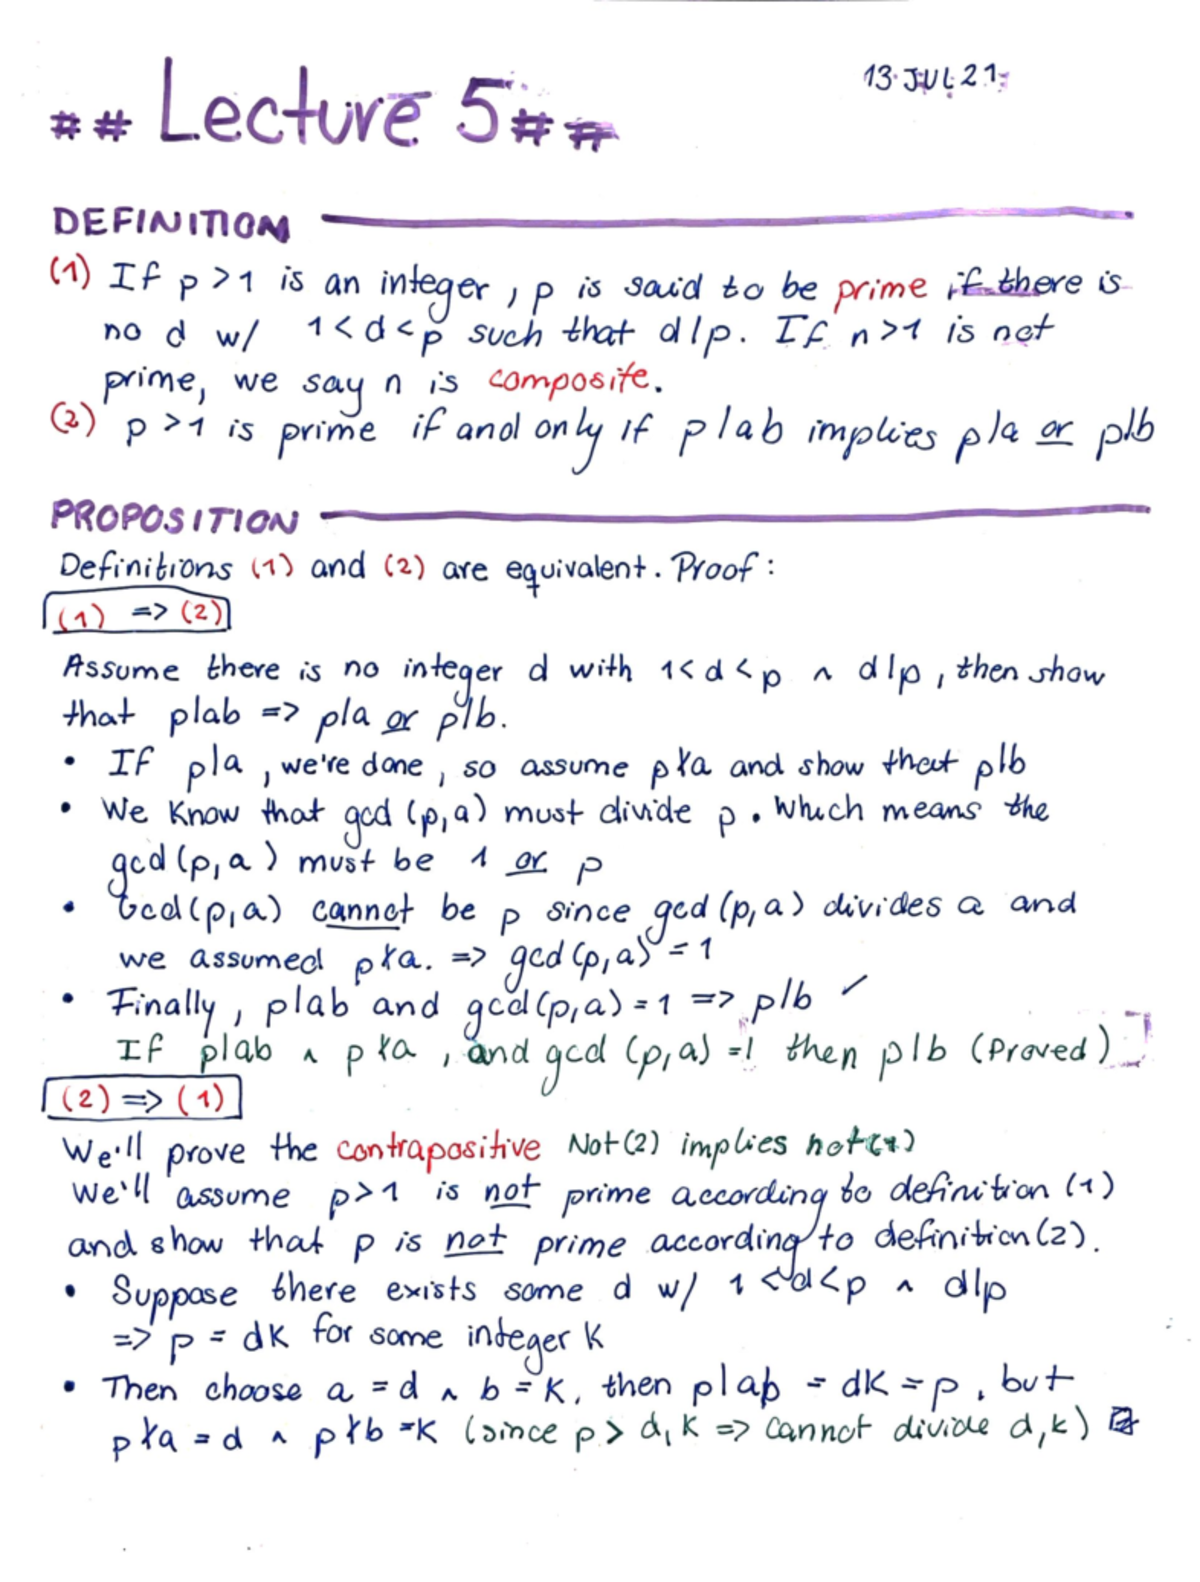 ## Lecture 5 ##
13 JUL 21
DEFINITION
(1) If p > 1 is an integer, p is said to be prime if there is
no d w/ 1 < d < p such that d|p. If n > 1 is not
prime, we say n is composite.
(2) p > 1 is prime if and only if p|ab implies p|a or p|b
PROPOSITION
Definitions (1) and (2) are equivalent. Proof:
(1) => (2)
Assume there is no integer d with 1 < d < p ∧ d|p, then show
that p|ab => p|a or p|b.
• If p|a, we're done, so assume p∤a and show that p|b
• We know that gcd(p,a) must divide p. Which means the
gcd(p,a) must be 1 or p
• Gcd(p,a) cannot be p since gcd(p,a) divides a and
we assumed p∤a. => gcd(p,a) = 1
• Finally, p|ab and gcd(p,a) = 1 => p|b ✓
If p|ab ∧ p∤a, and gcd(p,a) = 1 then p|b (Proved)
(2) => (1)
We'll prove the contrapositive Not(2) implies not(1)
We'll assume p>1 is not prime according to definition (1)
and show that p is not prime according to definition (2).
• Suppose there exists some d w/ 1 < d < p ∧ d|p
=> p = dk for some integer k
• Then choose a = d ∧ b = k, then p|ab = dk = p, but
p∤a = d ∧ p∤b = k (since p > d,k => cannot divide d,k)